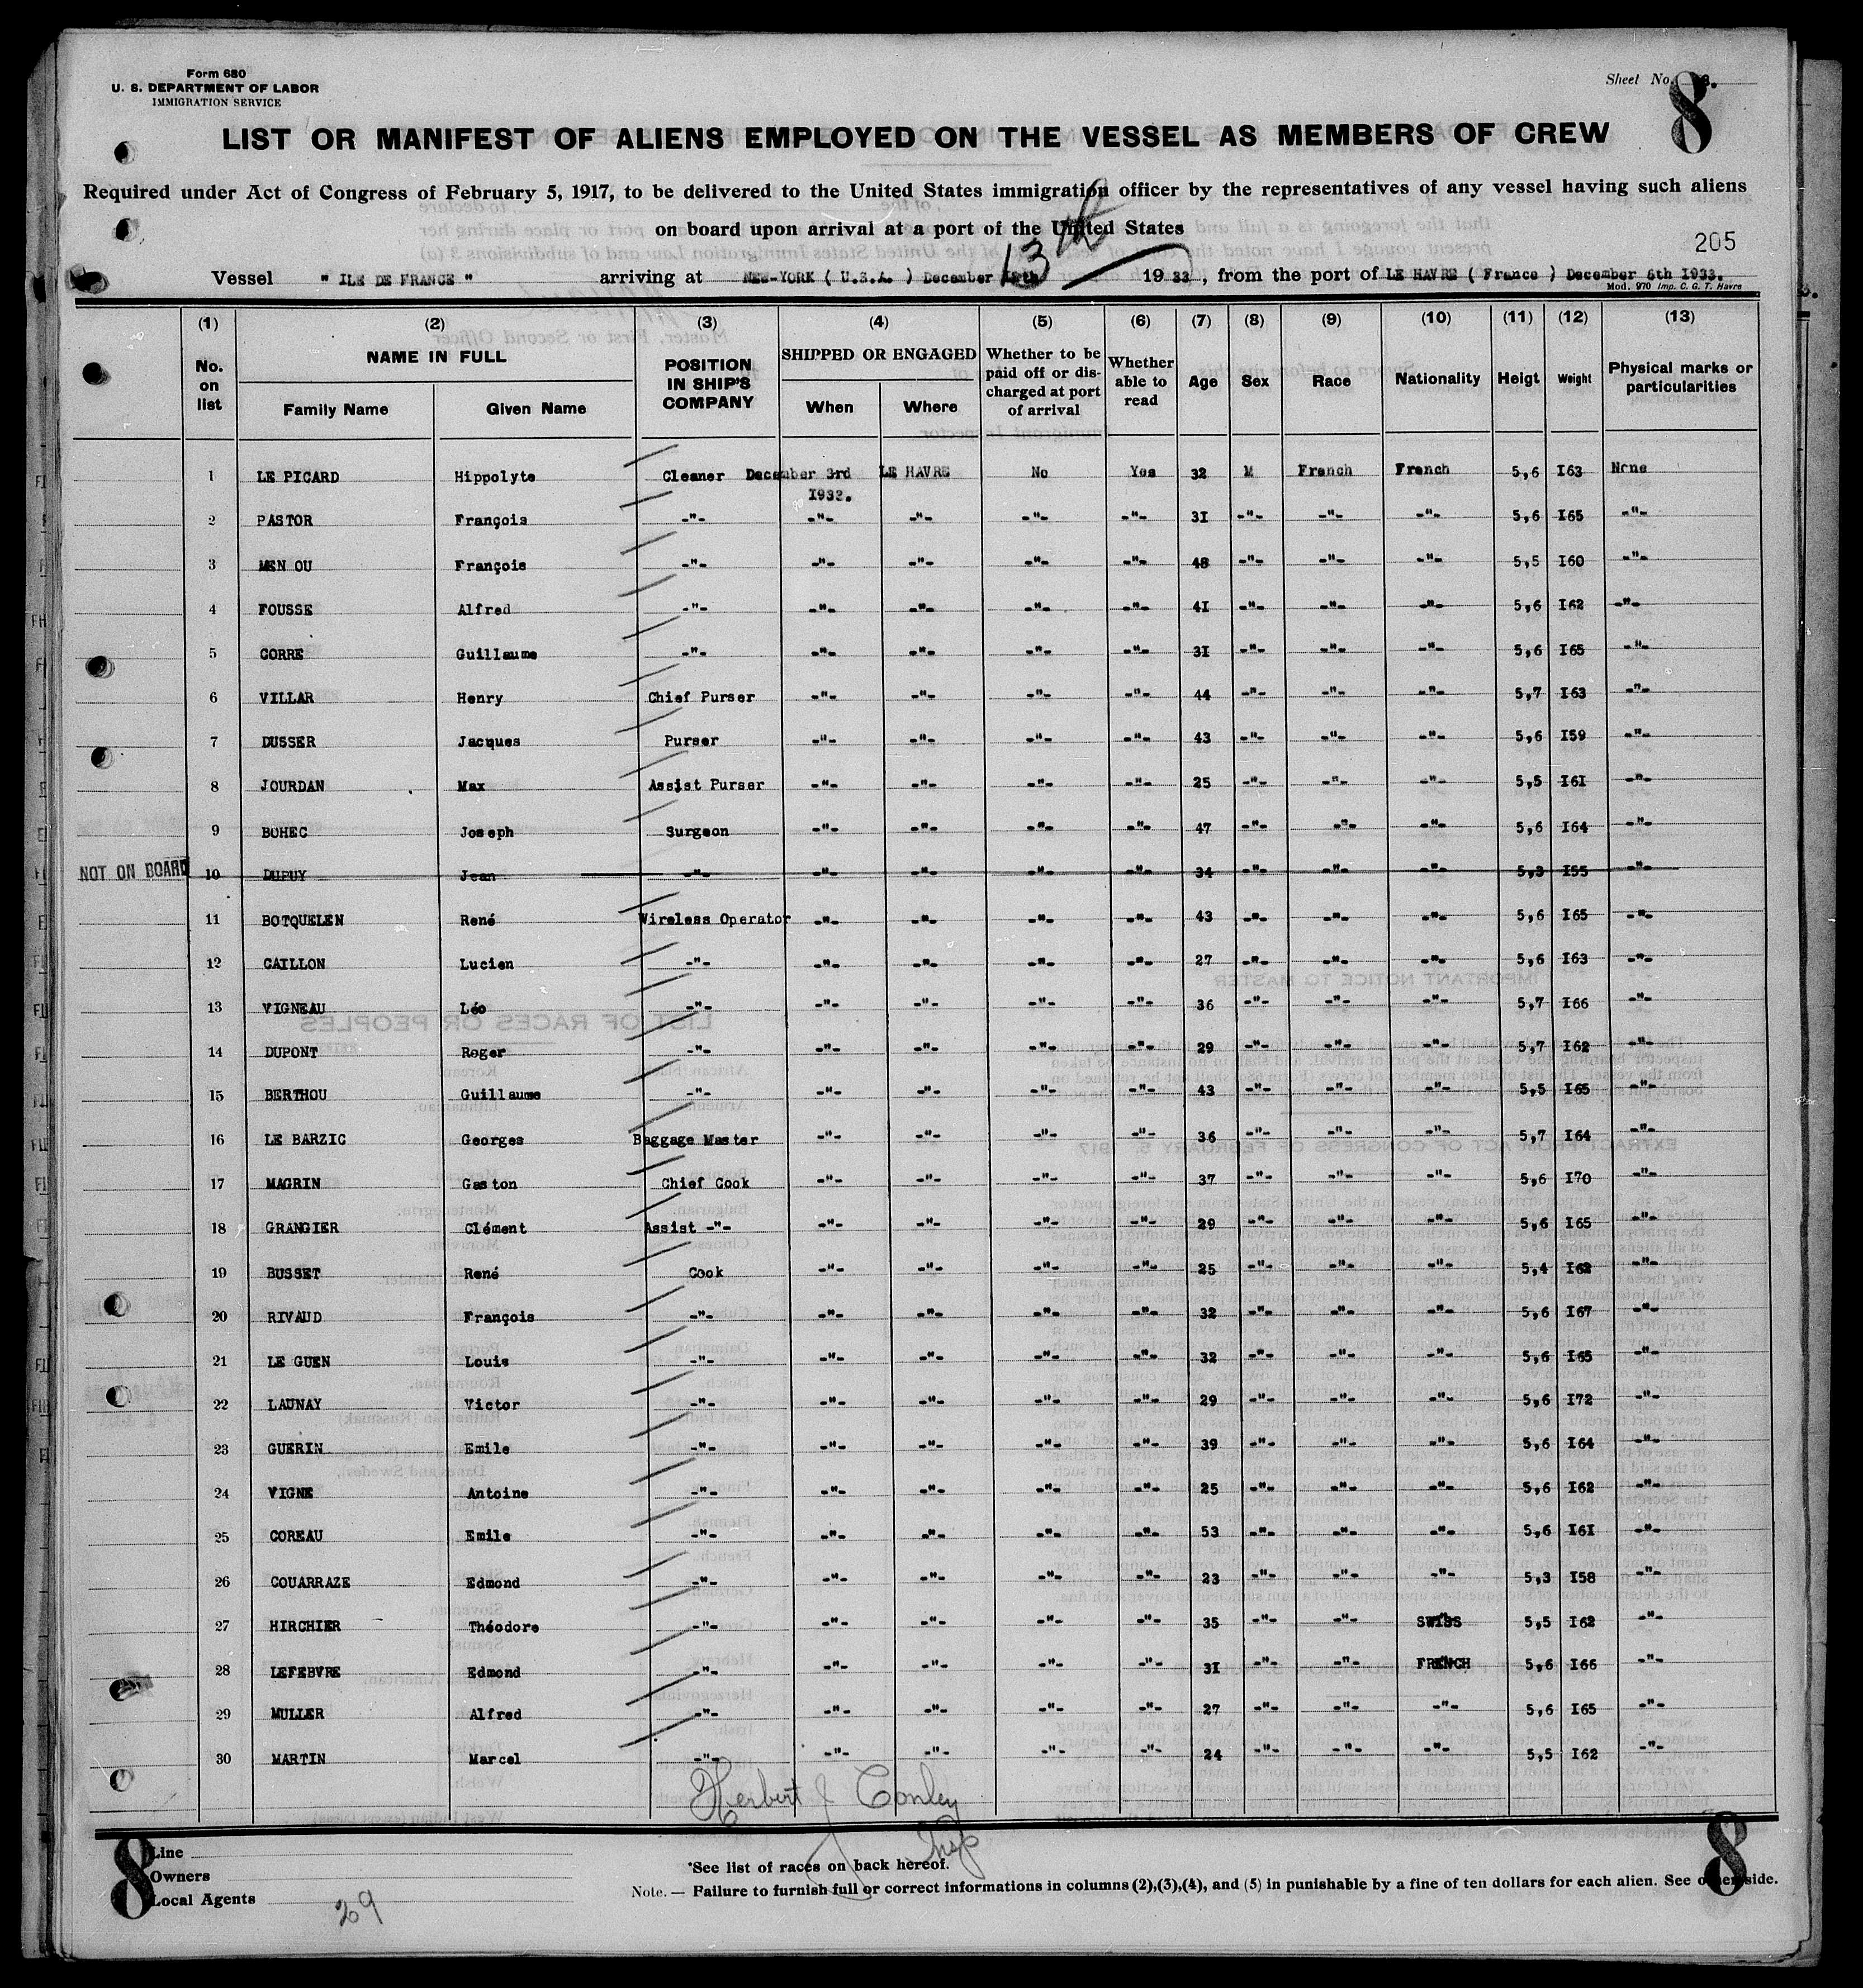 Form 680
U. S. DEPARTMENT OF LABOR
IMMIGRATION SERVICE
Sheet No. 8.
8
LIST OR MANIFEST OF ALIENS EMPLOYED ON THE VESSEL AS MEMBERS OF CREW
Required under Act of Congress of February 5, 1917, to be delivered to the United States immigration officer by the representatives of any vessel having such aliens
on board upon arrival at a port of the United States
205
13th
Vessel " ILE DE FRANCE " arriving at NEW-YORK ( U.S.A. ) December 1933, from the port of LE HAVRE ( France ) December 6th I933.
Mod. 970 Imp. C. G. T. Havre
(1) (2) (3) (4) (5) (6) (7) (8) (9) (10) (11) (12) (13)
No. on list NAME IN FULL POSITION IN SHIP'S COMPANY SHIPPED OR ENGAGED Whether to be paid off or discharged at port of arrival Whether able to read Age Sex Race Nationality Heigt Weight Physical marks or particularities
Family Name Given Name When Where
1 LE PICARD Hippolyte Cleaner December 3rd LE HAVRE No Yes 32 M French French 5,6 I63 None
I932.
2 PASTOR François -"- -"- -"- -"- -"- 3I -"- -"- -"- 5,6 I65 -"-
3 MEN OU François -"- -"- -"- -"- -"- 48 -"- -"- -"- 5,5 I60 -"-
4 FOUSSE Alfred -"- -"- -"- -"- -"- 4I -"- -"- -"- 5,6 I62 -"-
5 CORRE Guillaume -"- -"- -"- -"- -"- 3I -"- -"- -"- 5,6 I65 -"-
6 VILLAR Henry Chief Purser -"- -"- -"- -"- 44 -"- -"- -"- 5,7 I63 -"-
7 DUSSER Jacques Purser -"- -"- -"- -"- 43 -"- -"- -"- 5,6 I59 -"-
8 JOURDAN Max Assist Purser -"- -"- -"- -"- 25 -"- -"- -"- 5,5 I6I -"-
9 BOHEC Joseph Surgeon -"- -"- -"- -"- 47 -"- -"- -"- 5,6 I64 -"-
NOT ON BOARD 10 DUPUY Jean -"- -"- -"- -"- -"- 34 -"- -"- -"- 5,3 I55 -"-
11 BOTQUELEN René Wireless Operator -"- -"- -"- -"- 43 -"- -"- -"- 5,6 I65 -"-
12 CAILLON Lucien -"- -"- -"- -"- -"- 27 -"- -"- -"- 5,6 I63 -"-
13 VIGNEAU Léo -"- -"- -"- -"- -"- 36 -"- -"- -"- 5,7 I66 -"-
14 DUPONT Roger -"- -"- -"- -"- -"- 29 -"- -"- -"- 5,7 I62 -"-
15 BERTHOU Guillaume -"- -"- -"- -"- -"- 43 -"- -"- -"- 5,5 I65 -"-
16 LE BARZIC Georges Baggage Master -"- -"- -"- -"- 36 -"- -"- -"- 5,7 I64 -"-
17 MAGRIN Gaston Chief Cook -"- -"- -"- -"- 37 -"- -"- -"- 5,6 I70 -"-
18 GRANGIER Clément Assist -"- -"- -"- -"- -"- 29 -"- -"- -"- 5,6 I65 -"-
19 BUSSET René Cook -"- -"- -"- -"- 25 -"- -"- -"- 5,4 I62 -"-
20 RIVAUD François -"- -"- -"- -"- -"- 32 -"- -"- -"- 5,6 I67 -"-
21 LE GUEN Louis -"- -"- -"- -"- -"- 32 -"- -"- -"- 5,6 I65 -"-
22 LAUNAY Victor -"- -"- -"- -"- -"- 29 -"- -"- -"- 5,6 I72 -"-
23 GUERIN Emile -"- -"- -"- -"- -"- 39 -"- -"- -"- 5,6 I64 -"-
24 VIGNE Antoine -"- -"- -"- -"- -"- 25 -"- -"- -"- 5,6 I62 -"-
25 COREAU Emile -"- -"- -"- -"- -"- 53 -"- -"- -"- 5,6 I6I -"-
26 COUARRAZE Edmond -"- -"- -"- -"- -"- 23 -"- -"- -"- 5,3 I58 -"-
27 HIRCHIER Théodore -"- -"- -"- -"- -"- 35 -"- -"- SWISS 5,5 I62 -"-
28 LEFEBVRE Edmond -"- -"- -"- -"- -"- 3I -"- -"- FRENCH 5,6 I66 -"-
29 MULLER Alfred -"- -"- -"- -"- -"- 27 -"- -"- -"- 5,6 I65 -"-
30 MARTIN Marcel -"- -"- -"- -"- -"- 24 -"- -"- -"- 5,5 I62 -"-
Herbert J Conley
Insp
8 Line
Owners
Local Agents
29
*See list of races on back hereof.
Note. — Failure to furnish full or correct informations in columns (2),(3),(4), and (5) in punishable by a fine of ten dollars for each alien. See other side.
8